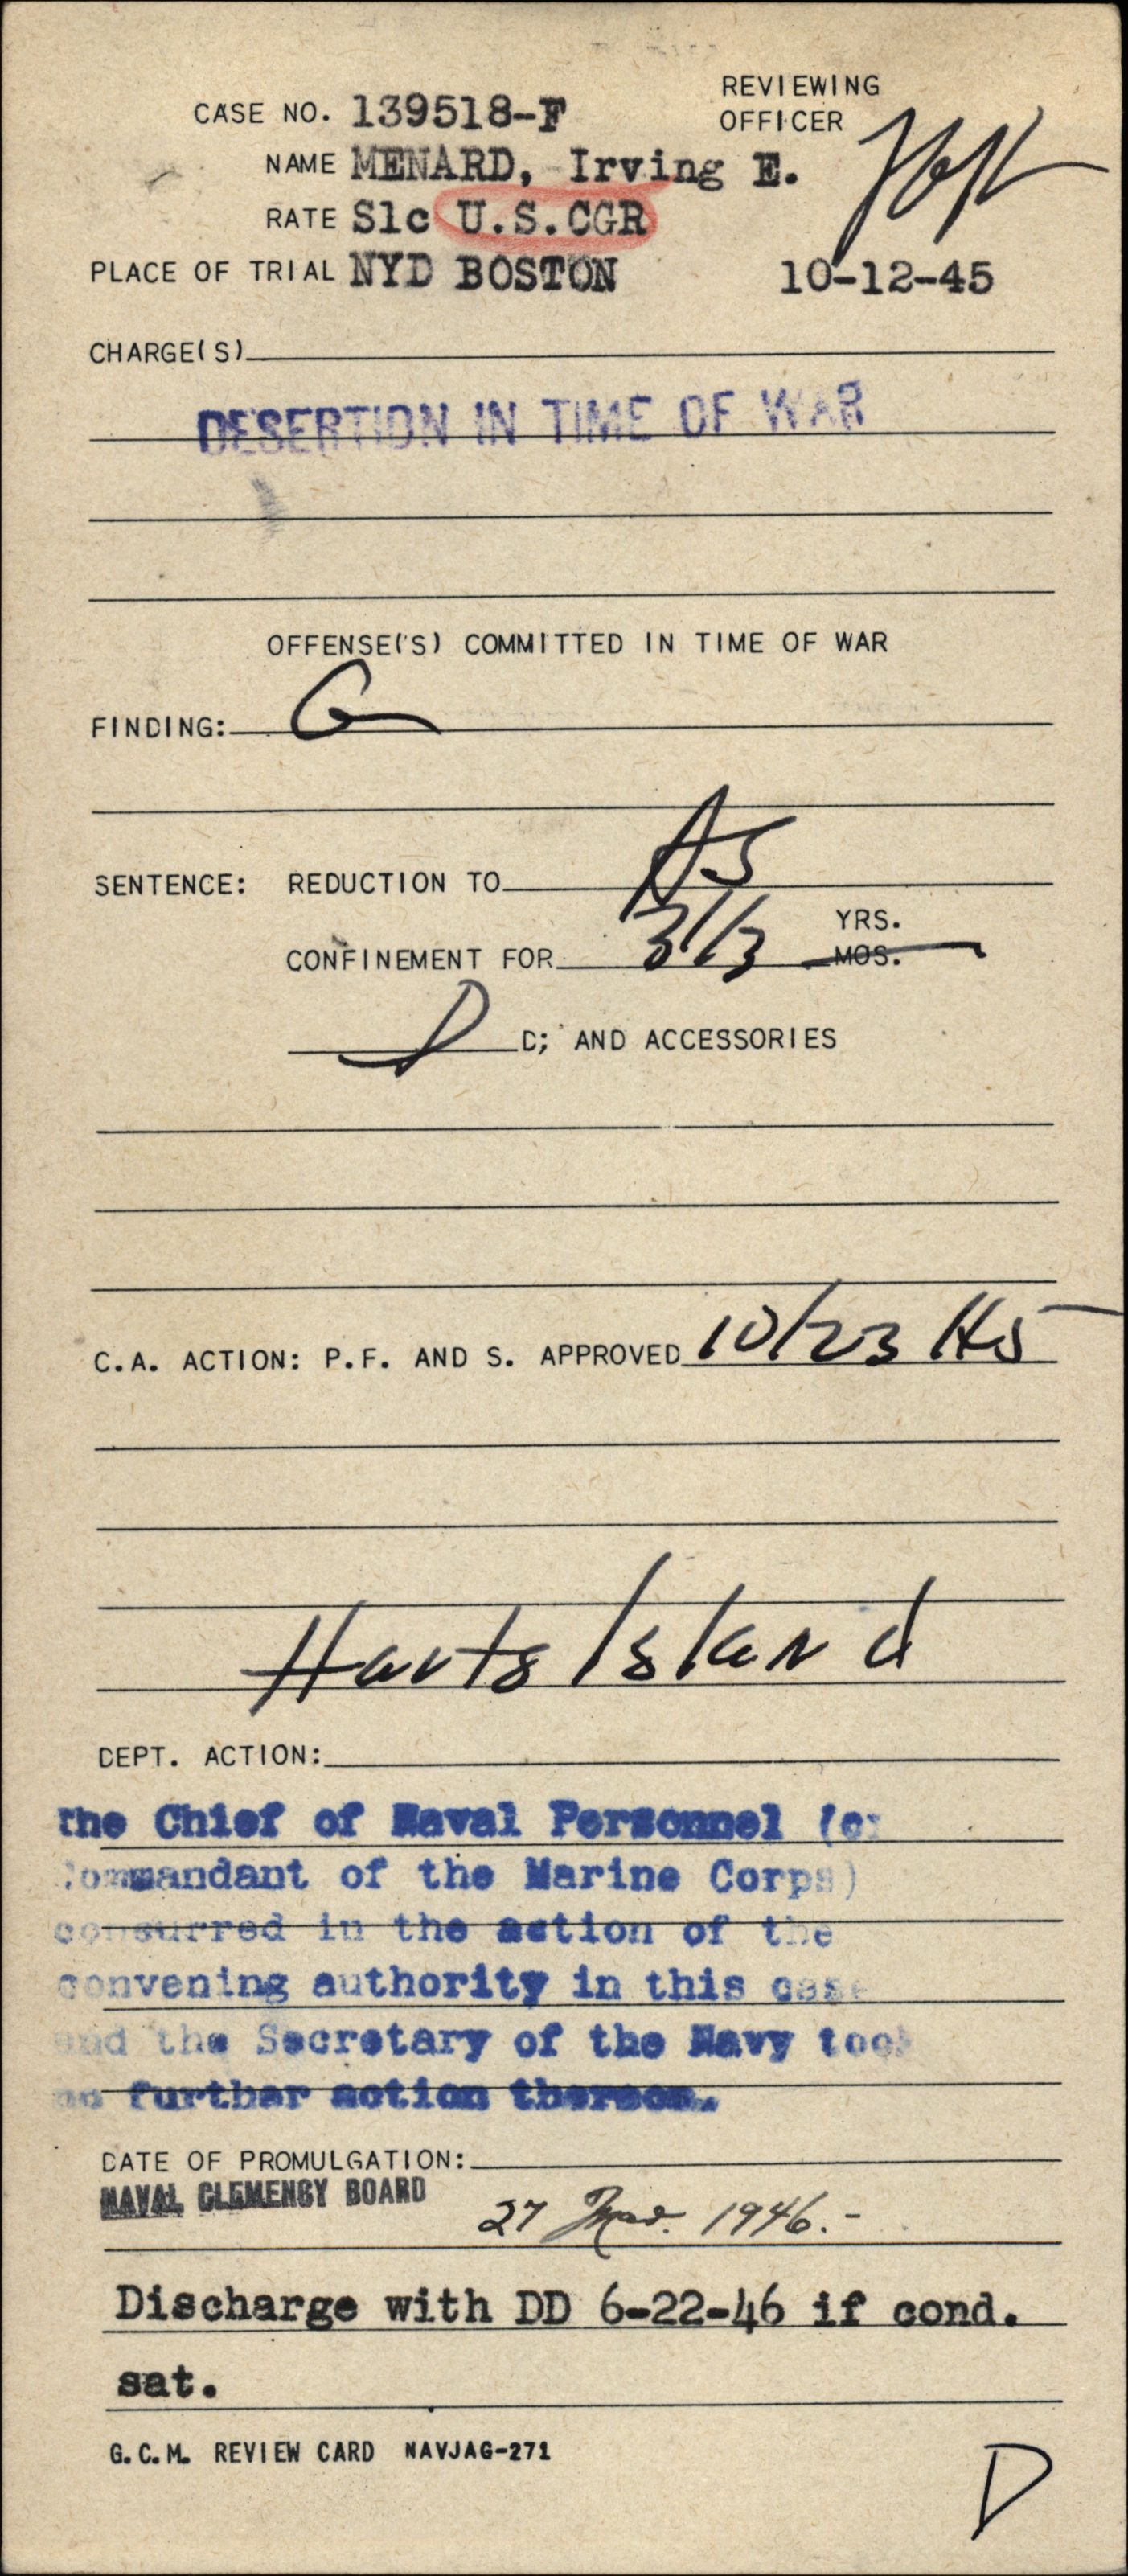 REVIEWING
OFFICER
CASE NO. 139518-F
NAME MENARD, Irving E.
RATE S1c U.S.CGR
PLACE OF TRIAL NYD BOSTON 10-12-45
CHARGE(S)
DESERTION IN TIME OF WAR
OFFENSE(S) COMMITTED IN TIME OF WAR
FINDING: G
SENTENCE: REDUCTION TO AS
YRS.
CONFINEMENT FOR 3/3 MOS.
D D; AND ACCESSORIES
C.A. ACTION: P.F. AND S. APPROVED 10/23 45
Harts Island
DEPT. ACTION:
the Chief of Naval Personnel (or
Commandant of the Marine Corps)
concurred in the action of the
convening authority in this case
and the Secretary of the Navy took
no further action thereon.
DATE OF PROMULGATION:
NAVAL CLEMENCY BOARD
27 Mar. 1946.-
Discharge with DD 6-22-46 if cond.
sat.
G.C.M. REVIEW CARD NAVJAG-271
D